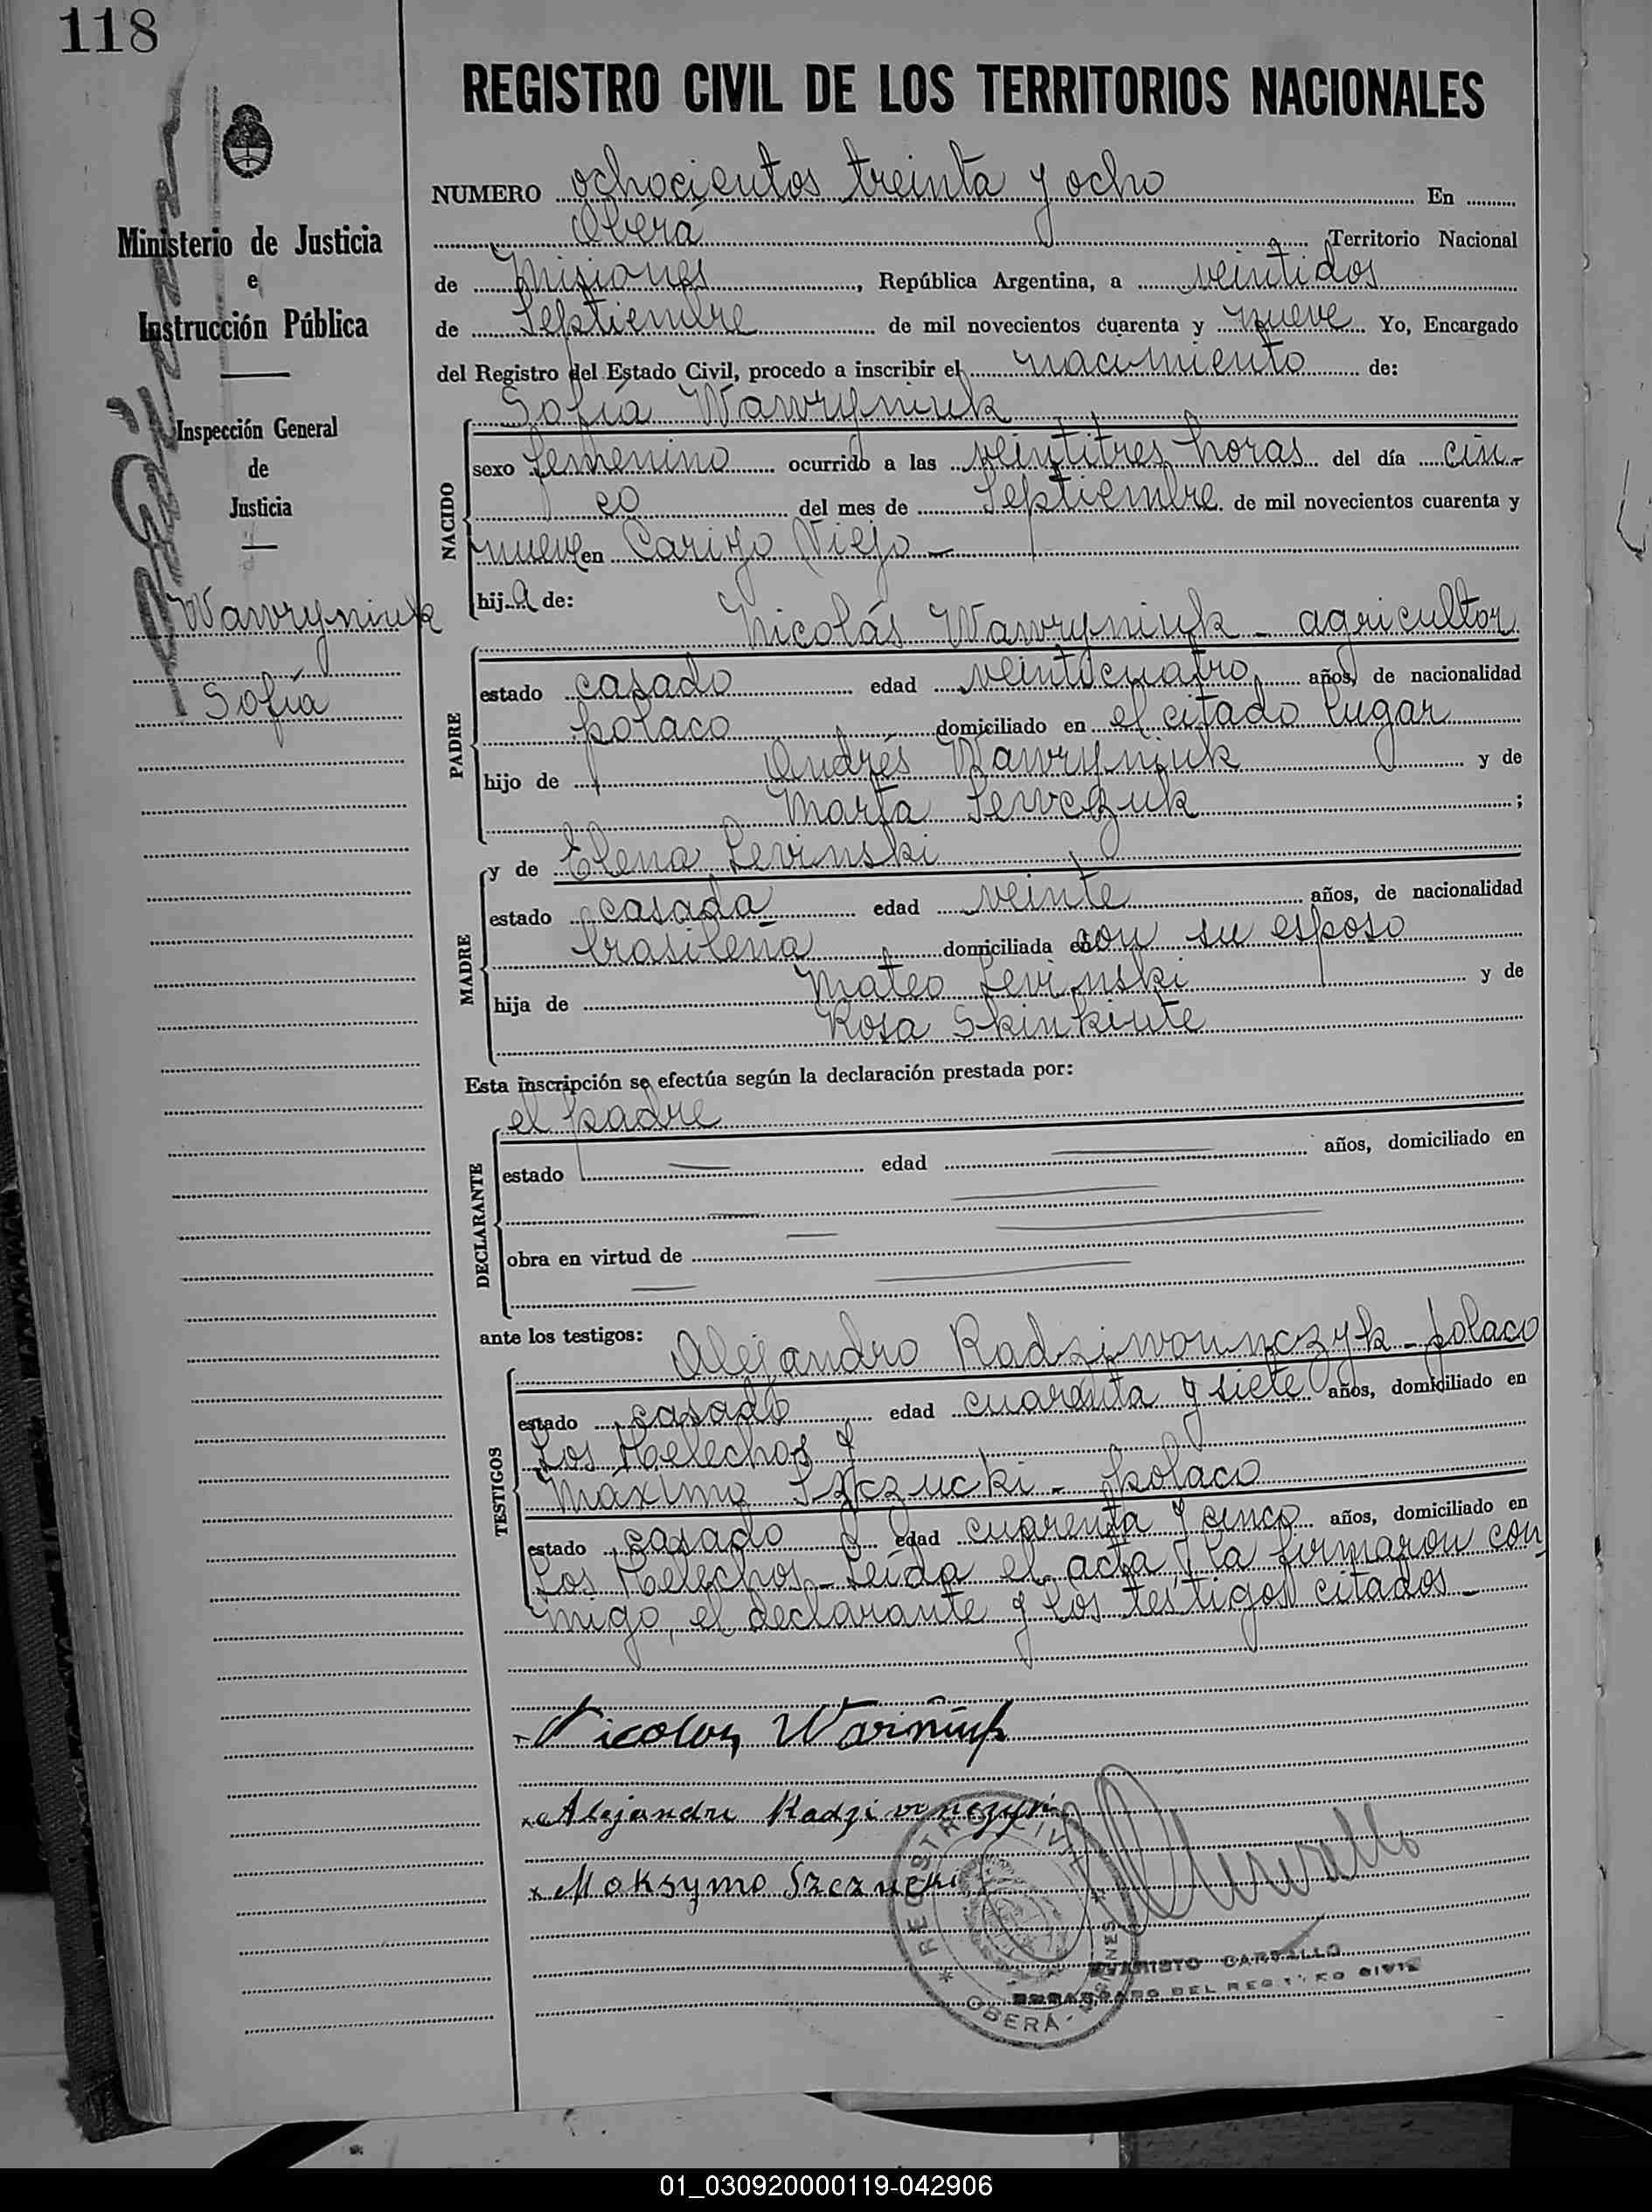 118
REGISTRO CIVIL DE LOS TERRITORIOS NACIONALES
Ministerio de Justicia
e
Instrucción Pública
Inspección General
de
Justicia
Wawryniuk
Sofía
NUMERO ochocientos treinta y ocho En
Oberá Territorio Nacional
de Misiones, República Argentina, a veintidos
de Septiembre de mil novecientos cuarenta y nueve Yo, Encargado
del Registro del Estado Civil, procedo a inscribir el nacimiento de:
Sofía Wawryniuk
NACIDO
sexo femenino ocurrido a las veintitres horas del día cin-
co del mes de Septiembre de mil novecientos cuarenta y
nueve en Viejo -
hija de:
PADRE
Nicolás Wawryniuk - agricultor
estado casado edad veinticuatro años, de nacionalidad
polaco domiciliado en el citado lugar
hijo de Andrés Wawryniuk y de
Marta Sewczuk ;
MADRE
y de Elena Levinski
estado casada edad veinte años, de nacionalidad
brasileña domiciliada con su esposo
hija de Mateo Levinski y de
Rosa Skinkiute
Esta inscripción se efectúa según la declaración prestada por:
el padre
DECLARANTE
estado edad años, domiciliado en
obra en virtud de
ante los testigos:
TESTIGOS
Alejandro - polaco
estado casado edad cuarenta y siete años, domiciliado en
Los Helechos y
Maximo - polaco
estado casado edad cuarenta y cinco años, domiciliado en
Los Helechos - Leída el acta, la firmaron con-
migo, el declarante y los testigos citados -
Nicolas
Alejandro
Maksymo
REGISTRO CIVIL
OBERÁ - MISIONES
EVARISTO CARBALLO
ENCARGADO DEL REGISTRO CIVIL
01_030920000119-042906